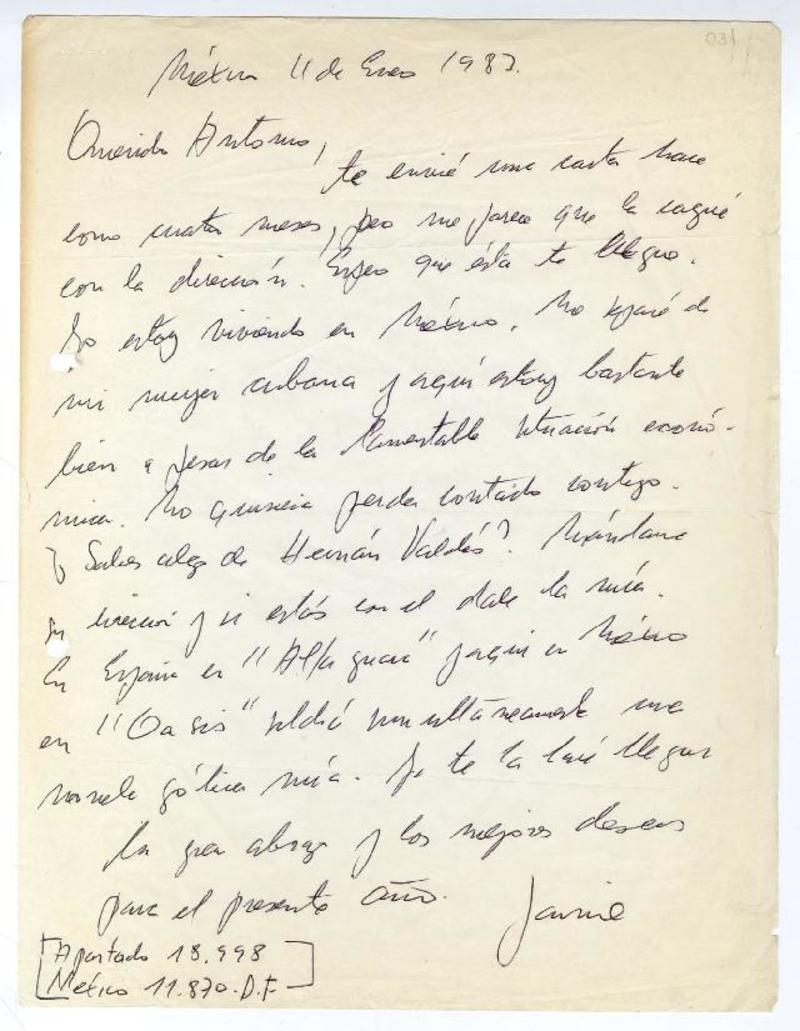 031
México 11 de Enero 1983.
Querido Antonio,
te envié una carta hace
como cuatro meses, pero me parece que la cagué
con la dirección. Espero que ésta te llegue.
Yo estoy viviendo en México. Me separé de
mi mujer cubana y aquí estoy bastante
bien a pesar de la lamentable situación econó-
mica. No quisiera perder contacto contigo.
¿Sabes algo de Hernán Valdés? Mándame
su dirección y si estás con el dale la mía.
En España en "Alfaguara" y aquí en México
en "Oasis" saldrá simultáneamente una
novela gótica mía. Ya te la haré llegar
Un gran abrazo y los mejores deseos
para el presente año. Jaime
Apartado 18.998
México 11.870. D.F.